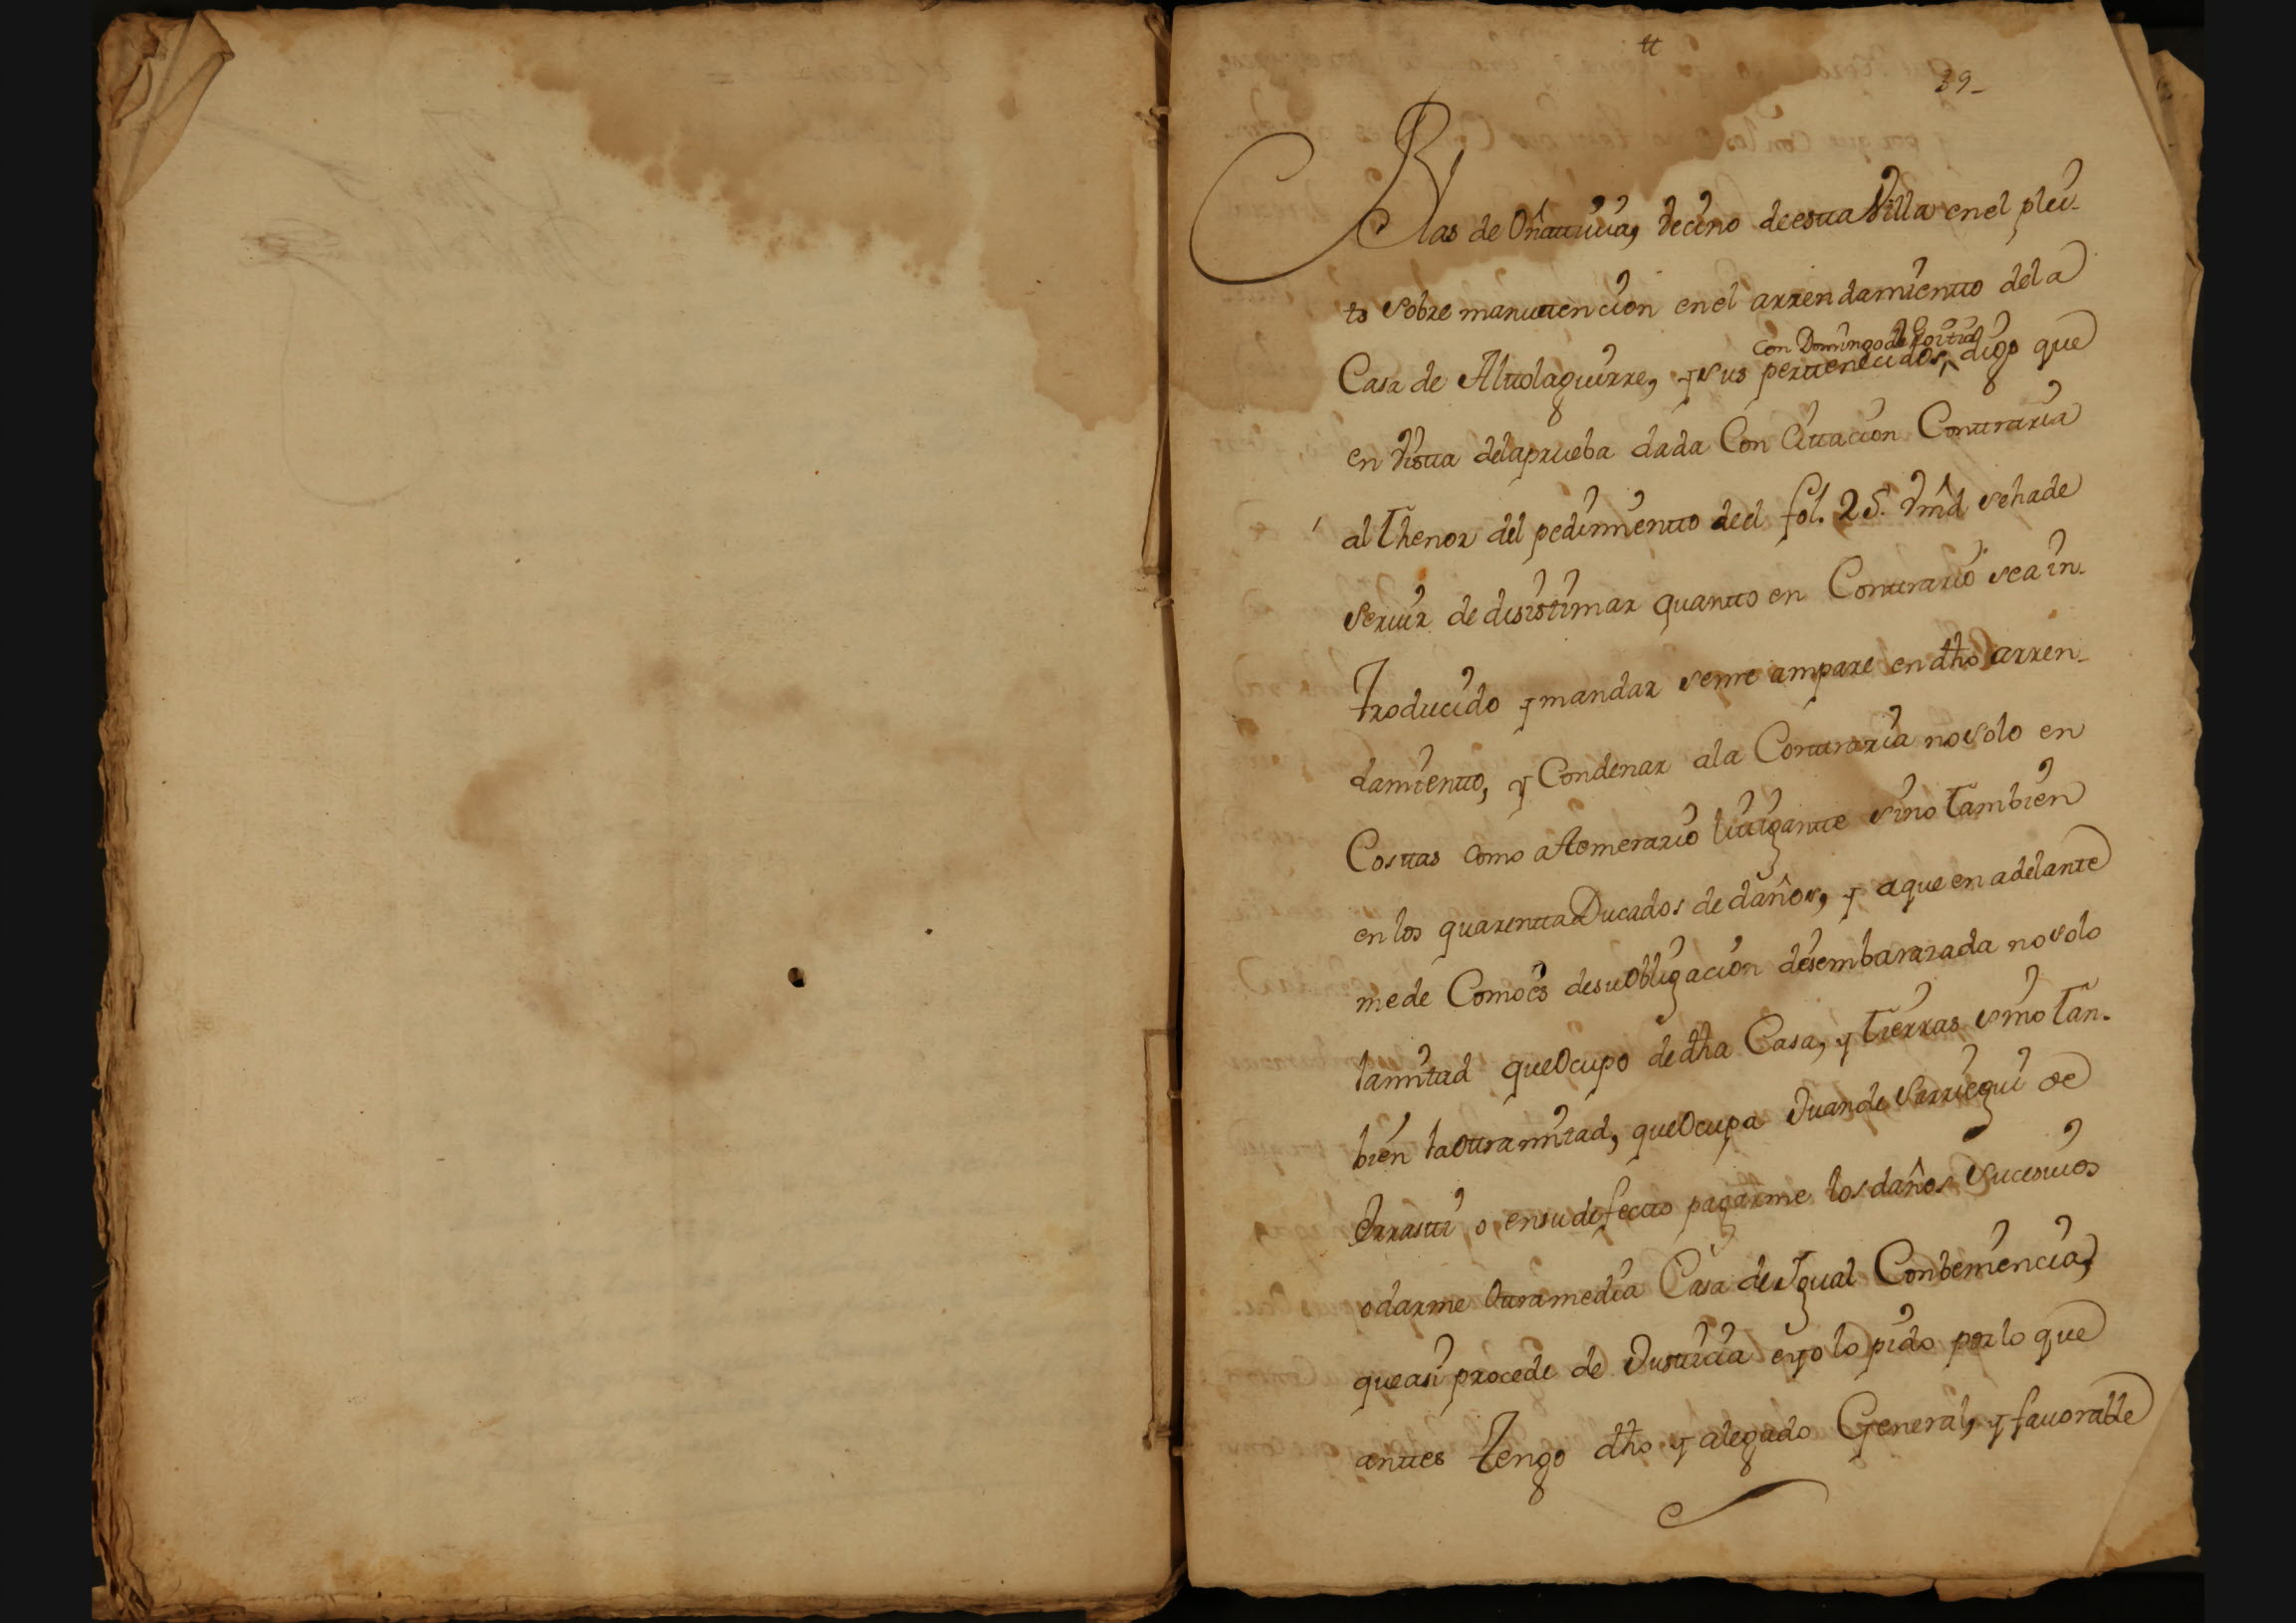 tt
39_
Blas de Oñativia, Vecino de esta Villa en el plei-
to sobre manutencion en el arrendamiento de la
con Domingo de Goitia
Casa de Altolaguirre, y sus pertenecidos, digo que
en vista dela prueba dada Con Citacion Contraria
al Thenor del pedimiento de el fol. 25. Vmd sehade
servir de disistimar quanto en Contrario sea in-
troducido y mandar seme ampare en dho arren-
damiento, y Condenar ala Contraria nosolo en
Costas como atemerario litigante sino Tambien
en los quarenta Ducados de daños, y aque en adelante
mede Como es desu Obligacion desembarazada nosolo
lamitad que Ocupo de dha Casa, y Tierras sino Tan-
bien la otra mitad, que Ocupa Juan de Sarriegui de
Errasti o ensudefecto pagarme los daños sucesivos
odarme Otra media Casa de Igual Conbeniencia,
queasi procede de Justicia eyo lo pido por lo que
antes Tengo dho y alegado General, y favorable